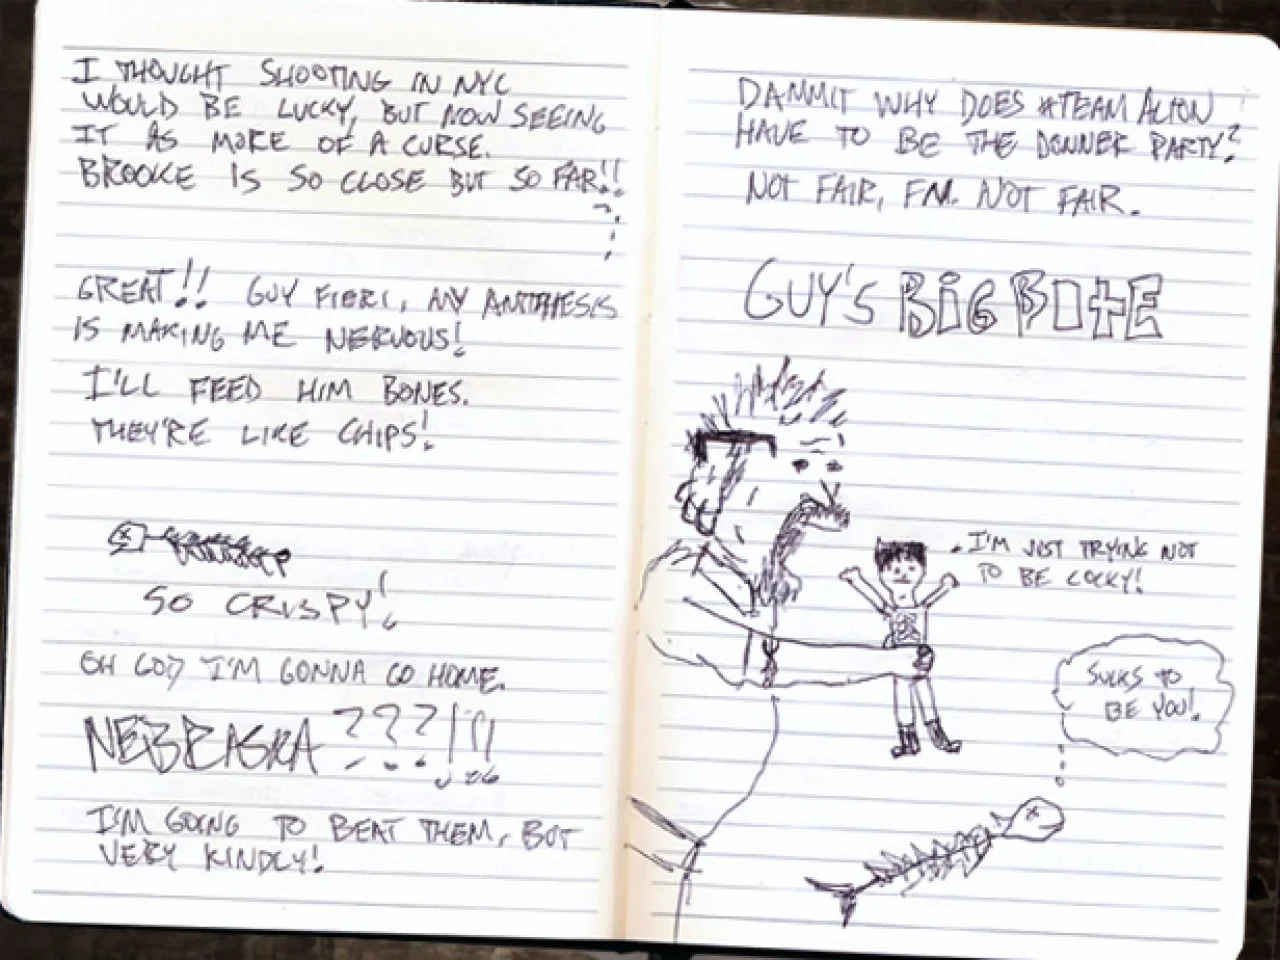 I THOUGHT SHOOTING IN NYC
WOULD BE LUCKY, BUT NOW SEEING
IT AS MORE OF A CURSE.
BROOKE IS SO CLOSE BUT SO FAR!!
GREAT!! GUY FIERI, MY ANTITHESIS
IS MAKING ME NERVOUS!
I'LL FEED HIM BONES.
THEY'RE LIKE CHIPS!
SO CRISPY!
OH GOD I'M GONNA GO HOME.
NEBRASKA ???!!!
I'M GOING TO BEAT THEM, BUT
VERY KINDLY!
DAMMIT WHY DOES #TEAM ALTON
HAVE TO BE THE DONNER PARTY?
NOT FAIR, FM. NOT FAIR.
GUY'S BIG BITE
I'M JUST TRYING NOT
TO BE COCKY!
SUCKS TO
BE YOU!